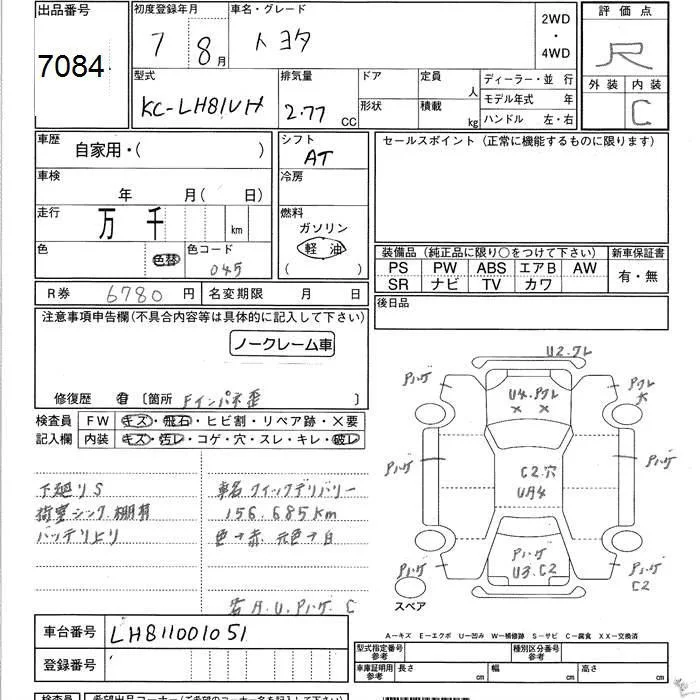 出品番号
7084
初度登録年月
7 8月
車名・グレード
トヨタ
2WD
・
4WD
評価点
R
外装 内装
C
型式
KC-LH81VH
排気量
2.77 CC
ドア
形状
定員 人
積載 kg
ディーラー・並 行
モデル年式 年
ハンドル 左・右
車歴
自家用・( )
車検
年 月( 日)
走行
万 千 km
色
色替
色コード
045
シフト
AT
冷房
燃料
ガソリン
軽油
( )
セールスポイント (正常に機能するものに限ります)
装備品 (純正品に限り○をつけて下さい)
新車保証書
PS PW ABS エアB AW
SR ナビ TV カワ
有・無
後日品
R券 6780 円 名変期限 月 日
注意事項申告欄(不具合内容等は具体的に記入して下さい)
ノークレーム車
修復歴 有 〔箇所 Fインパネ歪 〕
検査員 FW キズ・飛石・ヒビ割・リペア跡・×要
記入欄 内装 キズ・汚レ・コゲ・穴・スレ・キレ・破レ
下廻りS
荷室シンク.棚有
バッテリ上り
車名クイックデリバリー
156.685km
色→赤 元色→白
A.U.Pハゲ C
U2.クレ
Pハゲ
U4.Pクレ
× ×
Pクレ
Pハゲ
C2.穴
U4
Pハゲ
Pハゲ
Pハゲ
U3.C2
Pハゲ
C2
スペア
車台番号 LH811001051
登録番号
A-キズ E-エクボ U-凹み W-補修跡 S-サビ C-腐食 XX-交換済
型式指定番号
参考
種別区分番号
参考
車庫証明用
参考
長さ cm 幅 cm 高さ cm
検査員 希望出品コーナー(ご希望のコーナー名を記入